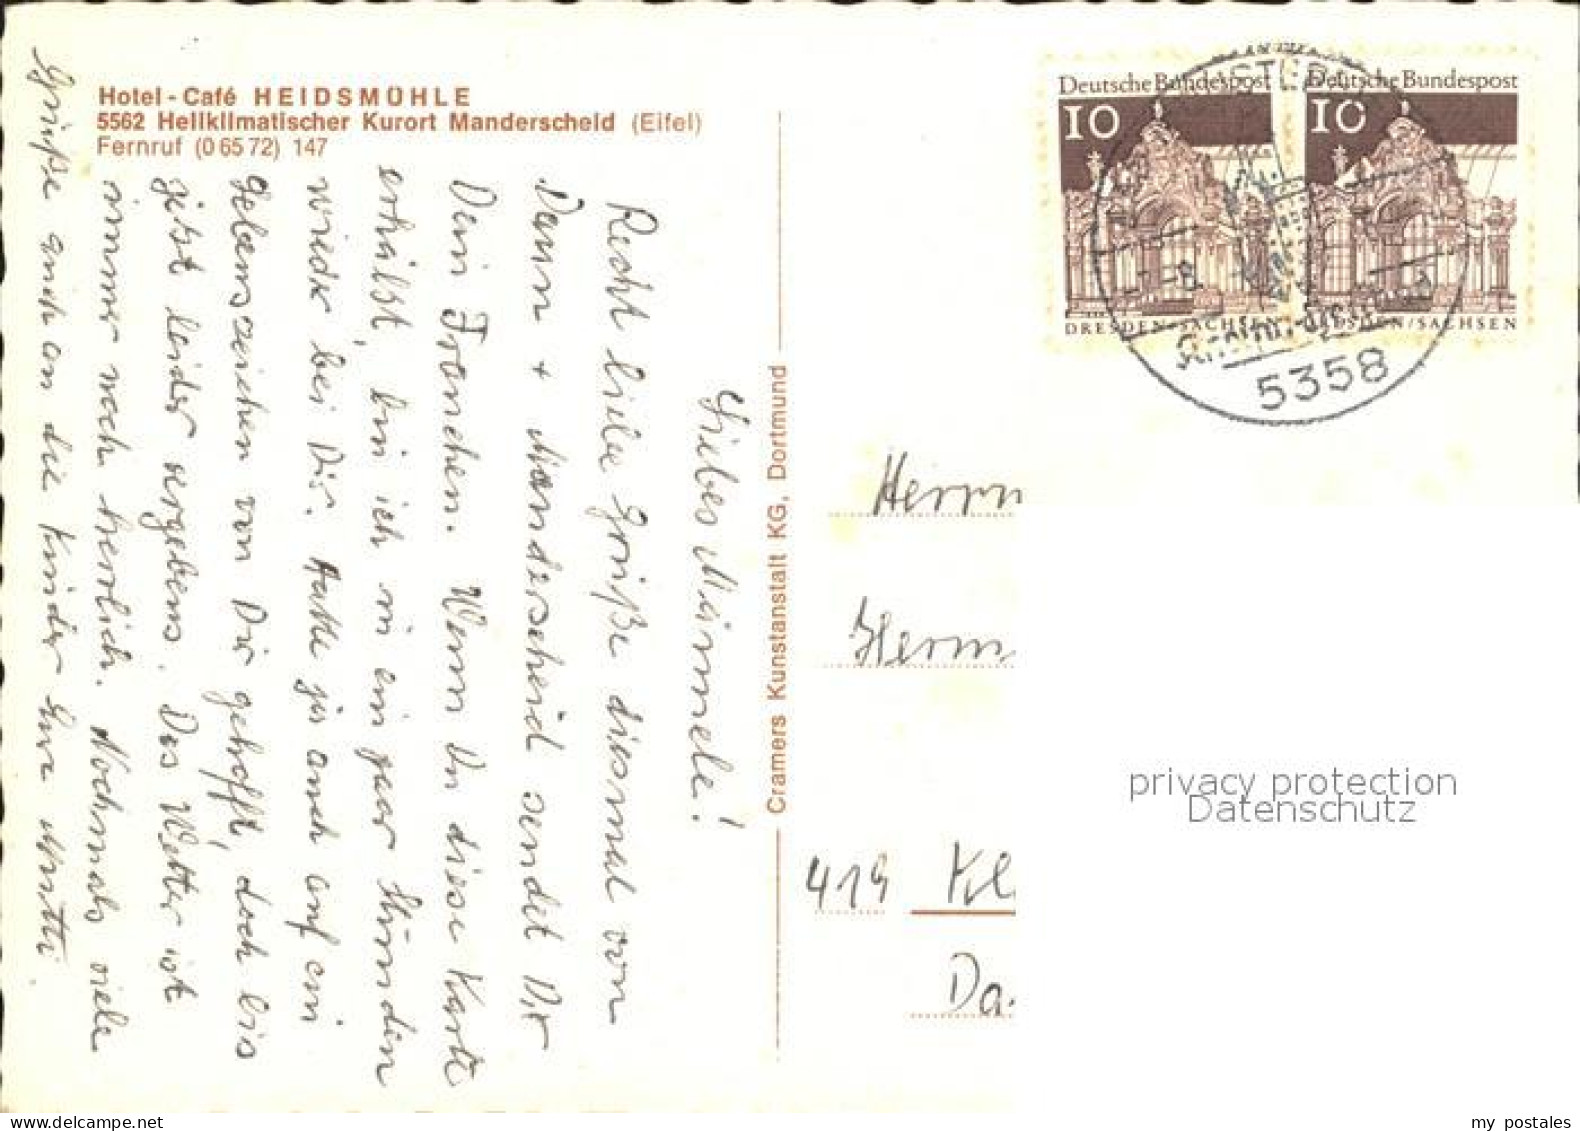 Hotel - Café HEIDSMÜHLE
5562 Heilklimatischer Kurort Manderscheid (Eifel)
Fernruf (0 65 72) 147
Liebes Mämmele!
Recht liebe Grüße diesmal von
Daun + Manderscheid sendet Dir
Dein Franchen. Wenn Du diese Karte
erhälst, bin ich in ein paar Stunden
wieder bei Dir. Hatte ja auch auf ein
Lebenszeichen von Dir gehofft, doch bis
jetzt leider vergebens. Das Wetter ist
immer noch herrlich. Nochmals viele
Grüße auch an die Kinder Eure Mutti.
Cramers Kunstanstalt KG, Dortmund
Deutsche Bundespost
10
DRESDEN/SACHSEN
Deutsche Bundespost
10
DRESDEN/SACHSEN
5358
Herrn
Herm
419 Kl
Da
privacy protection
Datenschutz
my postales